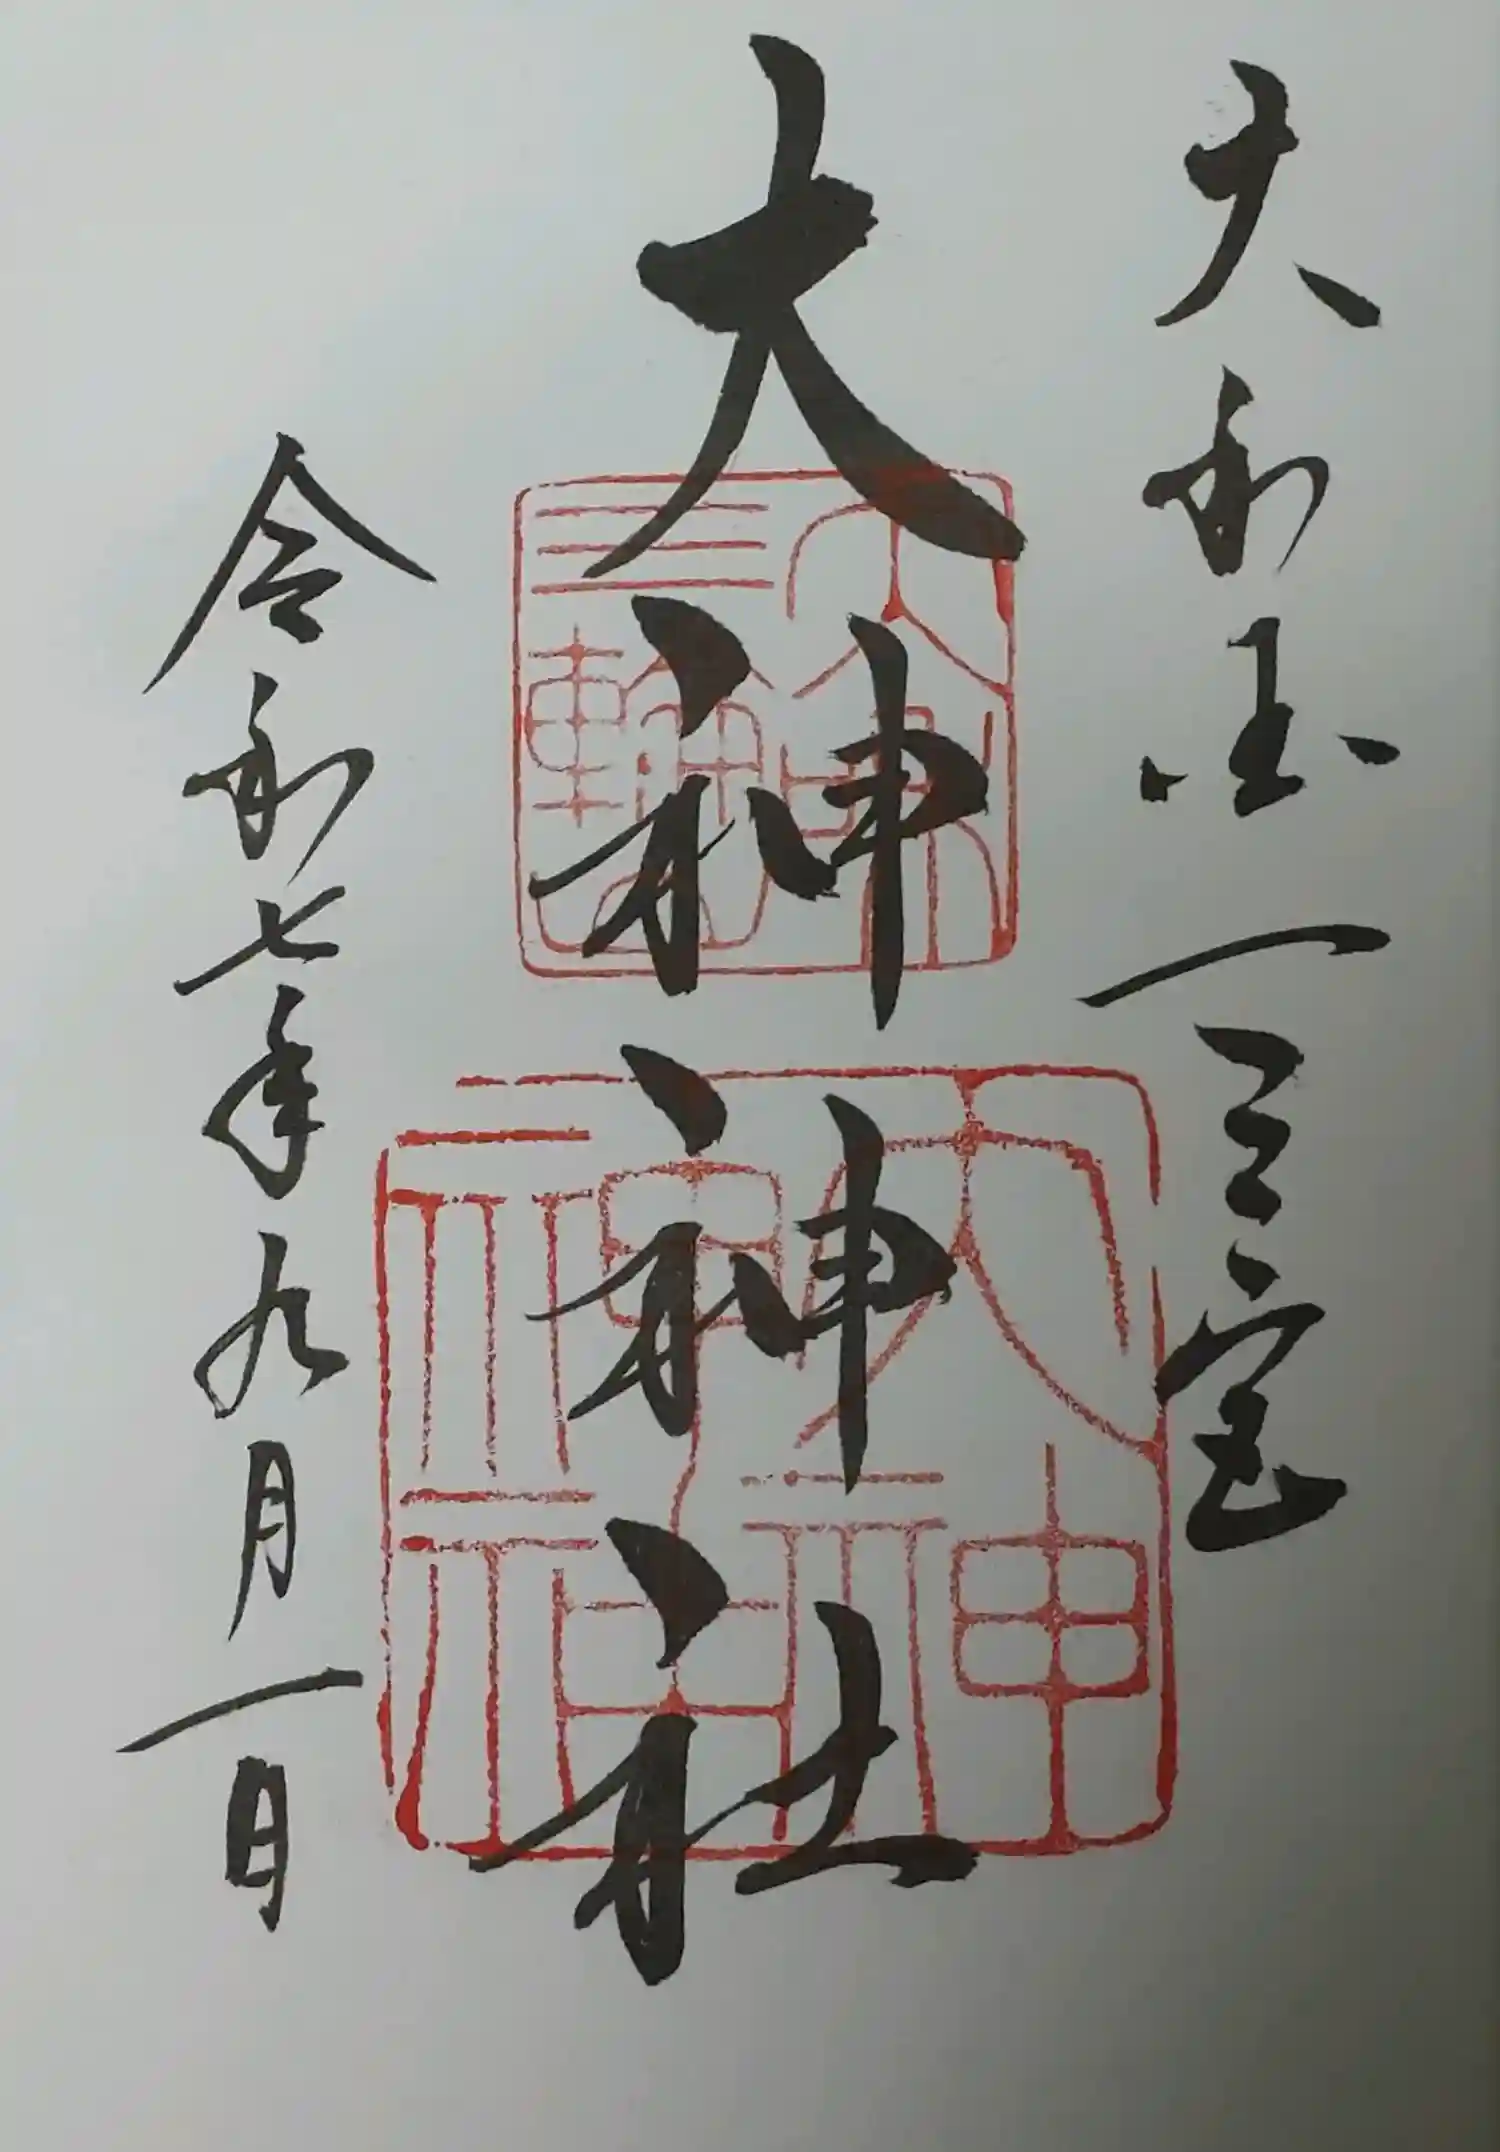 大和国一之宮
大神神社
令和七年九月一日
三輪明神
大神神社